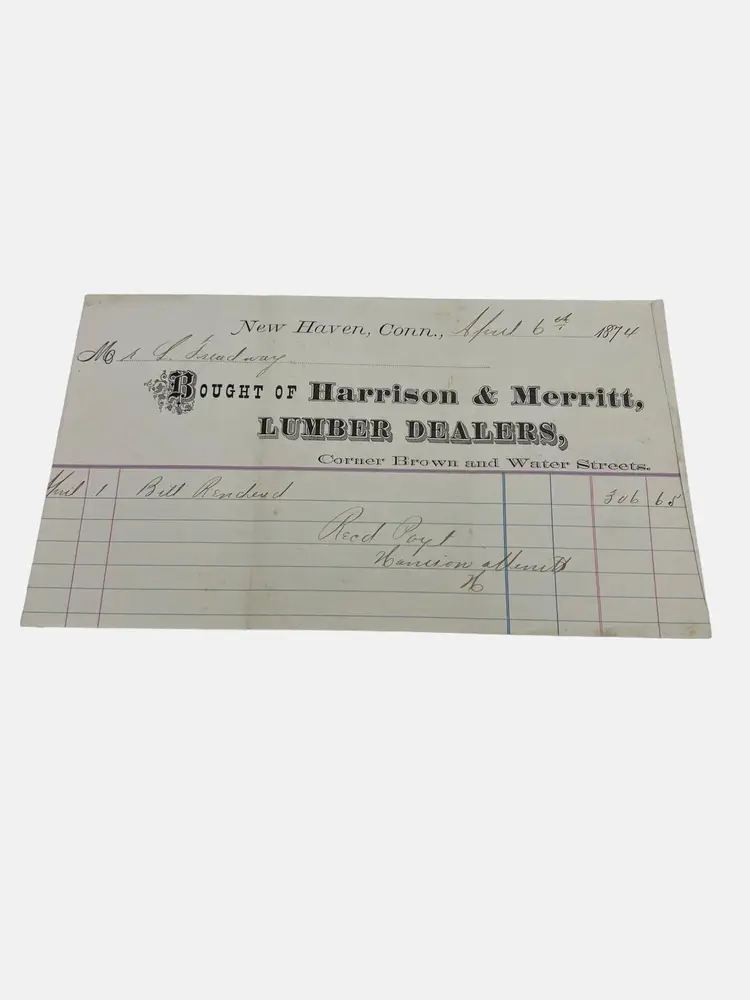 New Haven, Conn., April 6th 1874
Mr L. Treadway
BOUGHT OF Harrison & Merritt,
LUMBER DEALERS,
Corner Brown and Water Streets.
April 1 Bill Rendered 306 65
Recd Payt
Harrison & Merritt
H